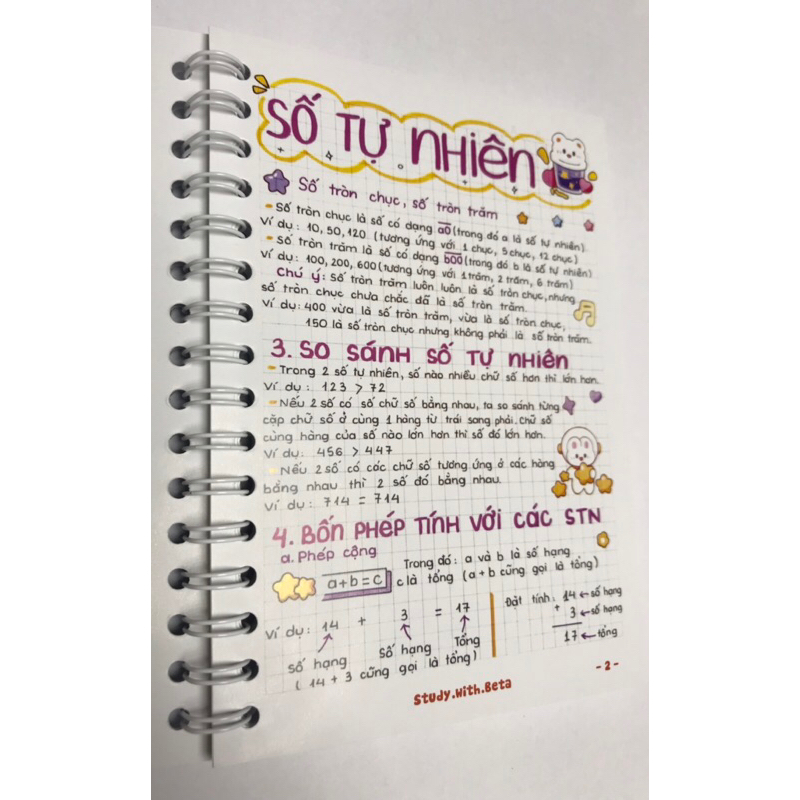 SỐ TỰ NHIÊN
Số tròn chục, số tròn trăm
- Số tròn chục là số có dạng a0 (trong đó a là số tự nhiên).
Ví dụ: 10, 50, 120 (tương ứng với 1 chục, 5 chục, 12 chục)
- Số tròn trăm là số có dạng b00 (trong đó b là số tự nhiên)
Ví dụ: 100, 200, 600 (tương ứng với 1 trăm, 2 trăm, 6 trăm)
Chú ý: Số tròn trăm luôn luôn là số tròn chục, nhưng
số tròn chục chưa chắc đã là số tròn trăm.
Ví dụ: 400 vừa là số tròn trăm, vừa là số tròn chục,
150 là số tròn chục nhưng không phải là số tròn trăm.
3. SO SÁNH SỐ TỰ NHIÊN
- Trong 2 số tự nhiên, số nào nhiều chữ số hơn thì lớn hơn.
Ví dụ: 123 > 72
- Nếu 2 số có số chữ số bằng nhau, ta so sánh từng
cặp chữ số ở cùng 1 hàng từ trái sang phải. Chữ số
cùng hàng của số nào lớn hơn thì số đó lớn hơn.
Ví dụ: 456 > 447
- Nếu 2 số có các chữ số tương ứng ở các hàng
bằng nhau thì 2 số đó bằng nhau.
Ví dụ: 714 = 714
4. BỐN PHÉP TÍNH VỚI CÁC STN
a. Phép cộng
a + b = c
Trong đó: a và b là số hạng
c là tổng (a + b cũng gọi là tổng)
Ví dụ: 14 + 3 = 17
Số hạng Số hạng Tổng
( 14 + 3 cũng gọi là tổng)
Đặt tính: 14 ← số hạng
+ 3 ← số hạng
17 ← tổng
- 2 -
Study.With.Beta